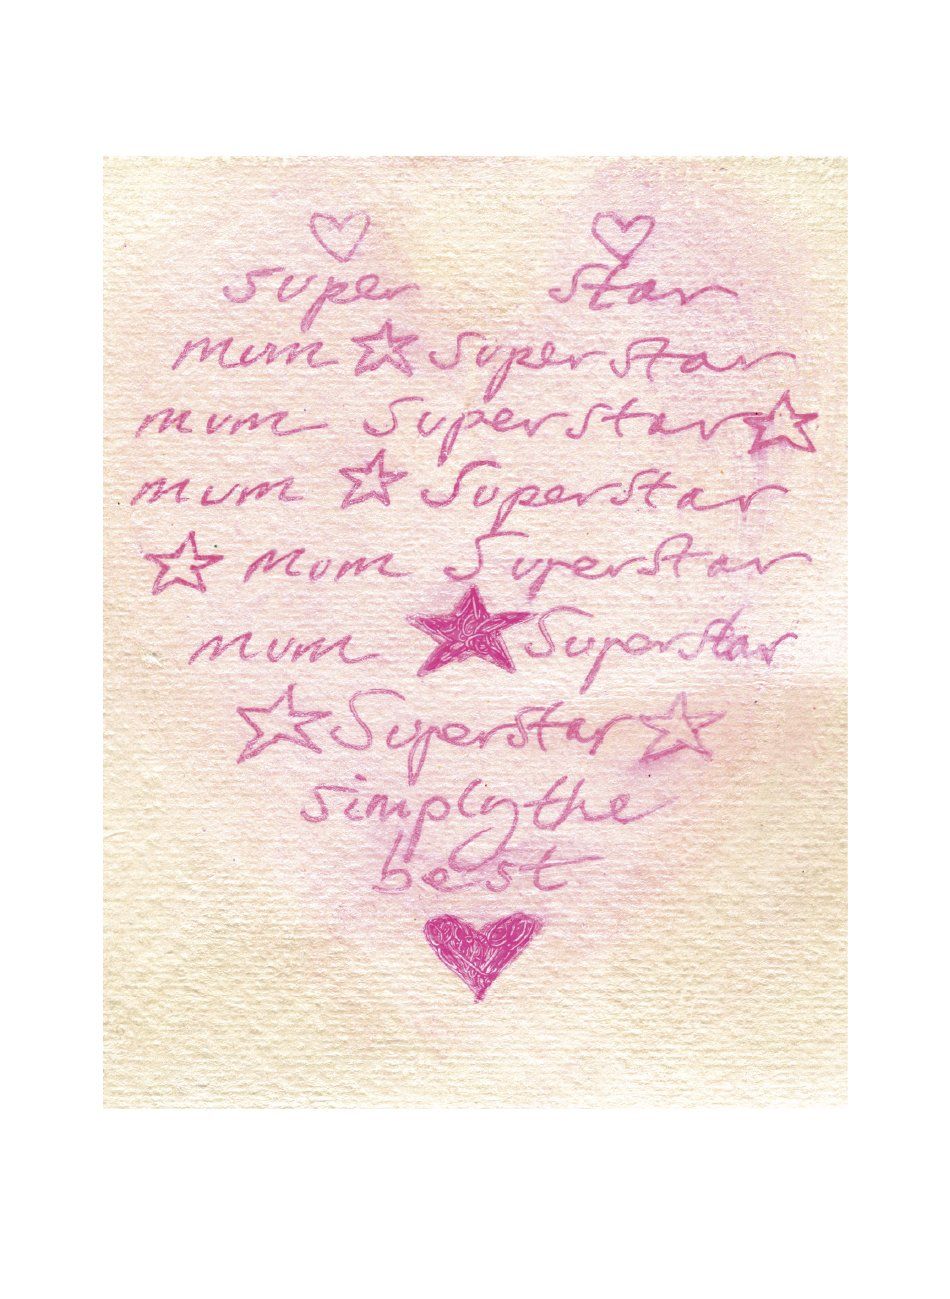 super star
mum superstar
mum superstar
mum superstar
mum superstar
mum superstar
superstar
simply the
best